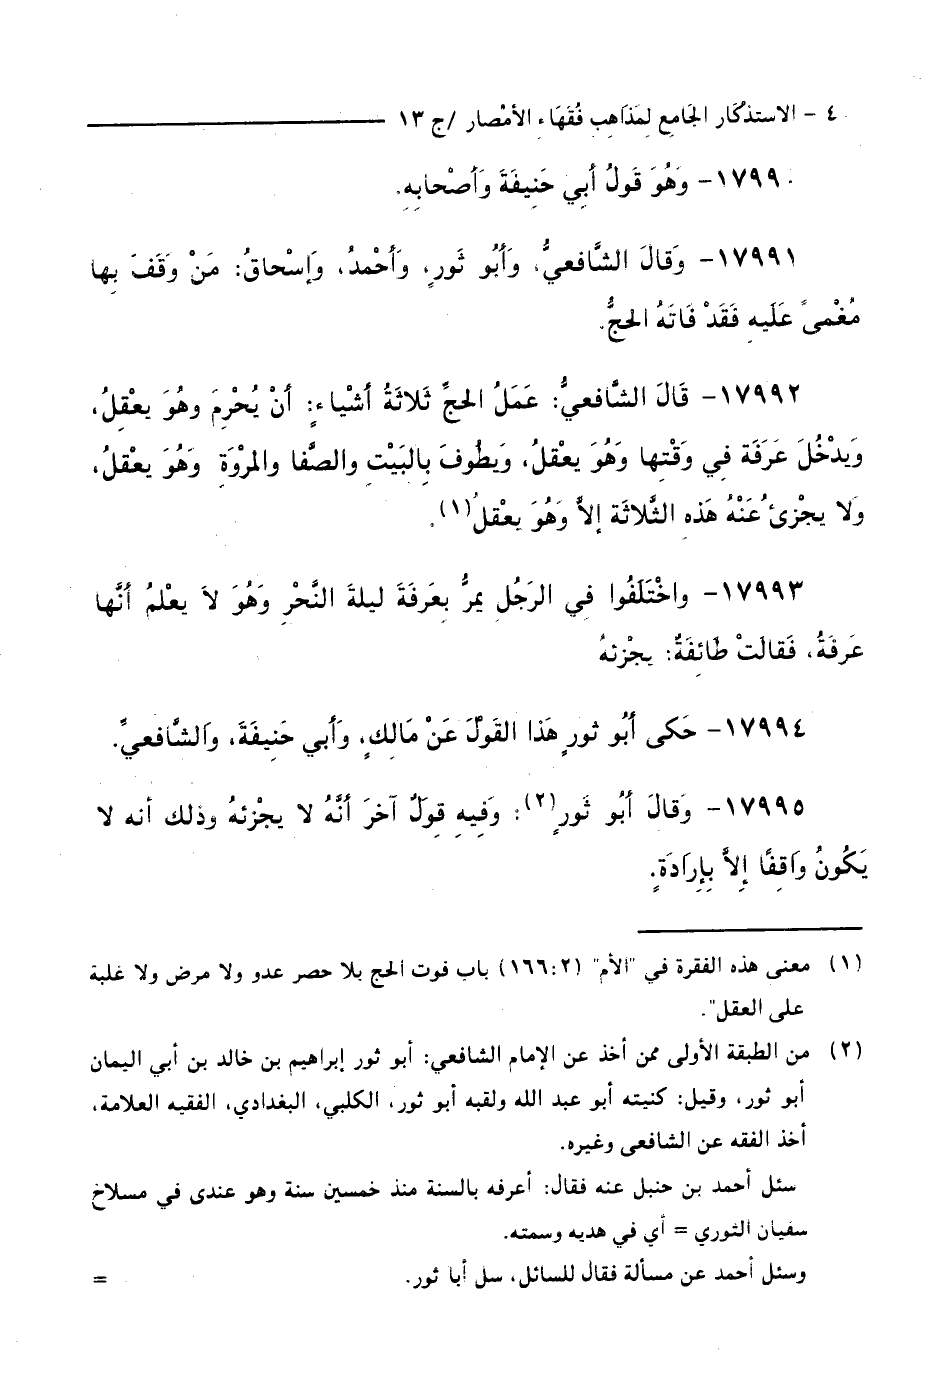 ٤ - الاستذكَار الجَامع لمَذاهِب فُقَهَاء الأمْصار /ج ١٣
١٧٩٩٠- وهُوَ قَولُ أبي حَنِيفَةَ وَأصْحابِهِ.
١٧٩٩١- وَقالَ الشَّافعيُّ، وَأبُو ثَورٍ، وَأحْمدُ، وَإسْحاقُ: مَنْ وَقَفَ بِها
مُغْمىً عَلَيهِ فَقَدْ فَاتَهُ الحجُّ.
١٧٩٩٢- قَالَ الشَّافعيُّ: عَمَلُ الحجِّ ثَلاثَةُ أشْياءٍ: أنْ يُحْرِمَ وهُوَ يعْقِلُ،
وَيدْخُلَ عَرَفَةَ فِي وَقْتِها وَهُوَ يعْقلُ، ويَطُوفَ بِالبَيْتِ والصَّفا والمرْوَةِ وَهُوَ يعْقلُ،
وَلا يجْزئُ عَنْهُ هَذهِ الثَّلاثَة إلاَّ وَهُوَ يعْقلُ(١).
١٧٩٩٣- واخْتَلَفُوا فِي الرَجُلِ يمرُّ بعَرفَةَ ليلةَ النَّحْرِ وَهُوَ لاَ يعْلمُ أنَّها
عَرفَةُ، فَقالَتْ طَائِفَةٌ: يجْزئهُ
١٧٩٩٤- حَكى أبُو ثورٍ هَذا القَولَ عَنْ مَالكٍ، وَأبي حَنِيفَةَ، وَالشَّافعيِّ.
١٧٩٩٥- وَقالَ أبُو ثَورٍ(٢): وَفِيهِ قَولٌ آخرَ أنَّهُ لا يجْزئهُ وذلك أنه لا
يَكُونُ واَقِفًا إلاَّ بِإِرادَةٍ.
(١) معنى هذه الفقرة في "الأم" (١٦٦:٢) باب فوت الحج بلا حصر عدو ولا مرض ولا غلبة
على العقل".
(٢) من الطبقة الأولى ممن أخذ عن الإمام الشافعي: أبو ثور إبراهيم بن خالد بن أبي اليمان
أبو ثور، وقيل: كنيته أبو عبد الله ولقبه أبو ثور، الكلبي، البغدادي، الفقيه العلامة،
أخذ الفقه عن الشافعى وغيره.
سئل أحمد بن حنبل عنه فقال: أعرفه بالسنة منذ خمسين سنة وهو عندى في مسلاخ
سفيان الثوري = أي في هديه وسمته.
وسئل أحمد عن مسألة فقال للسائل، سل أبا ثور. =